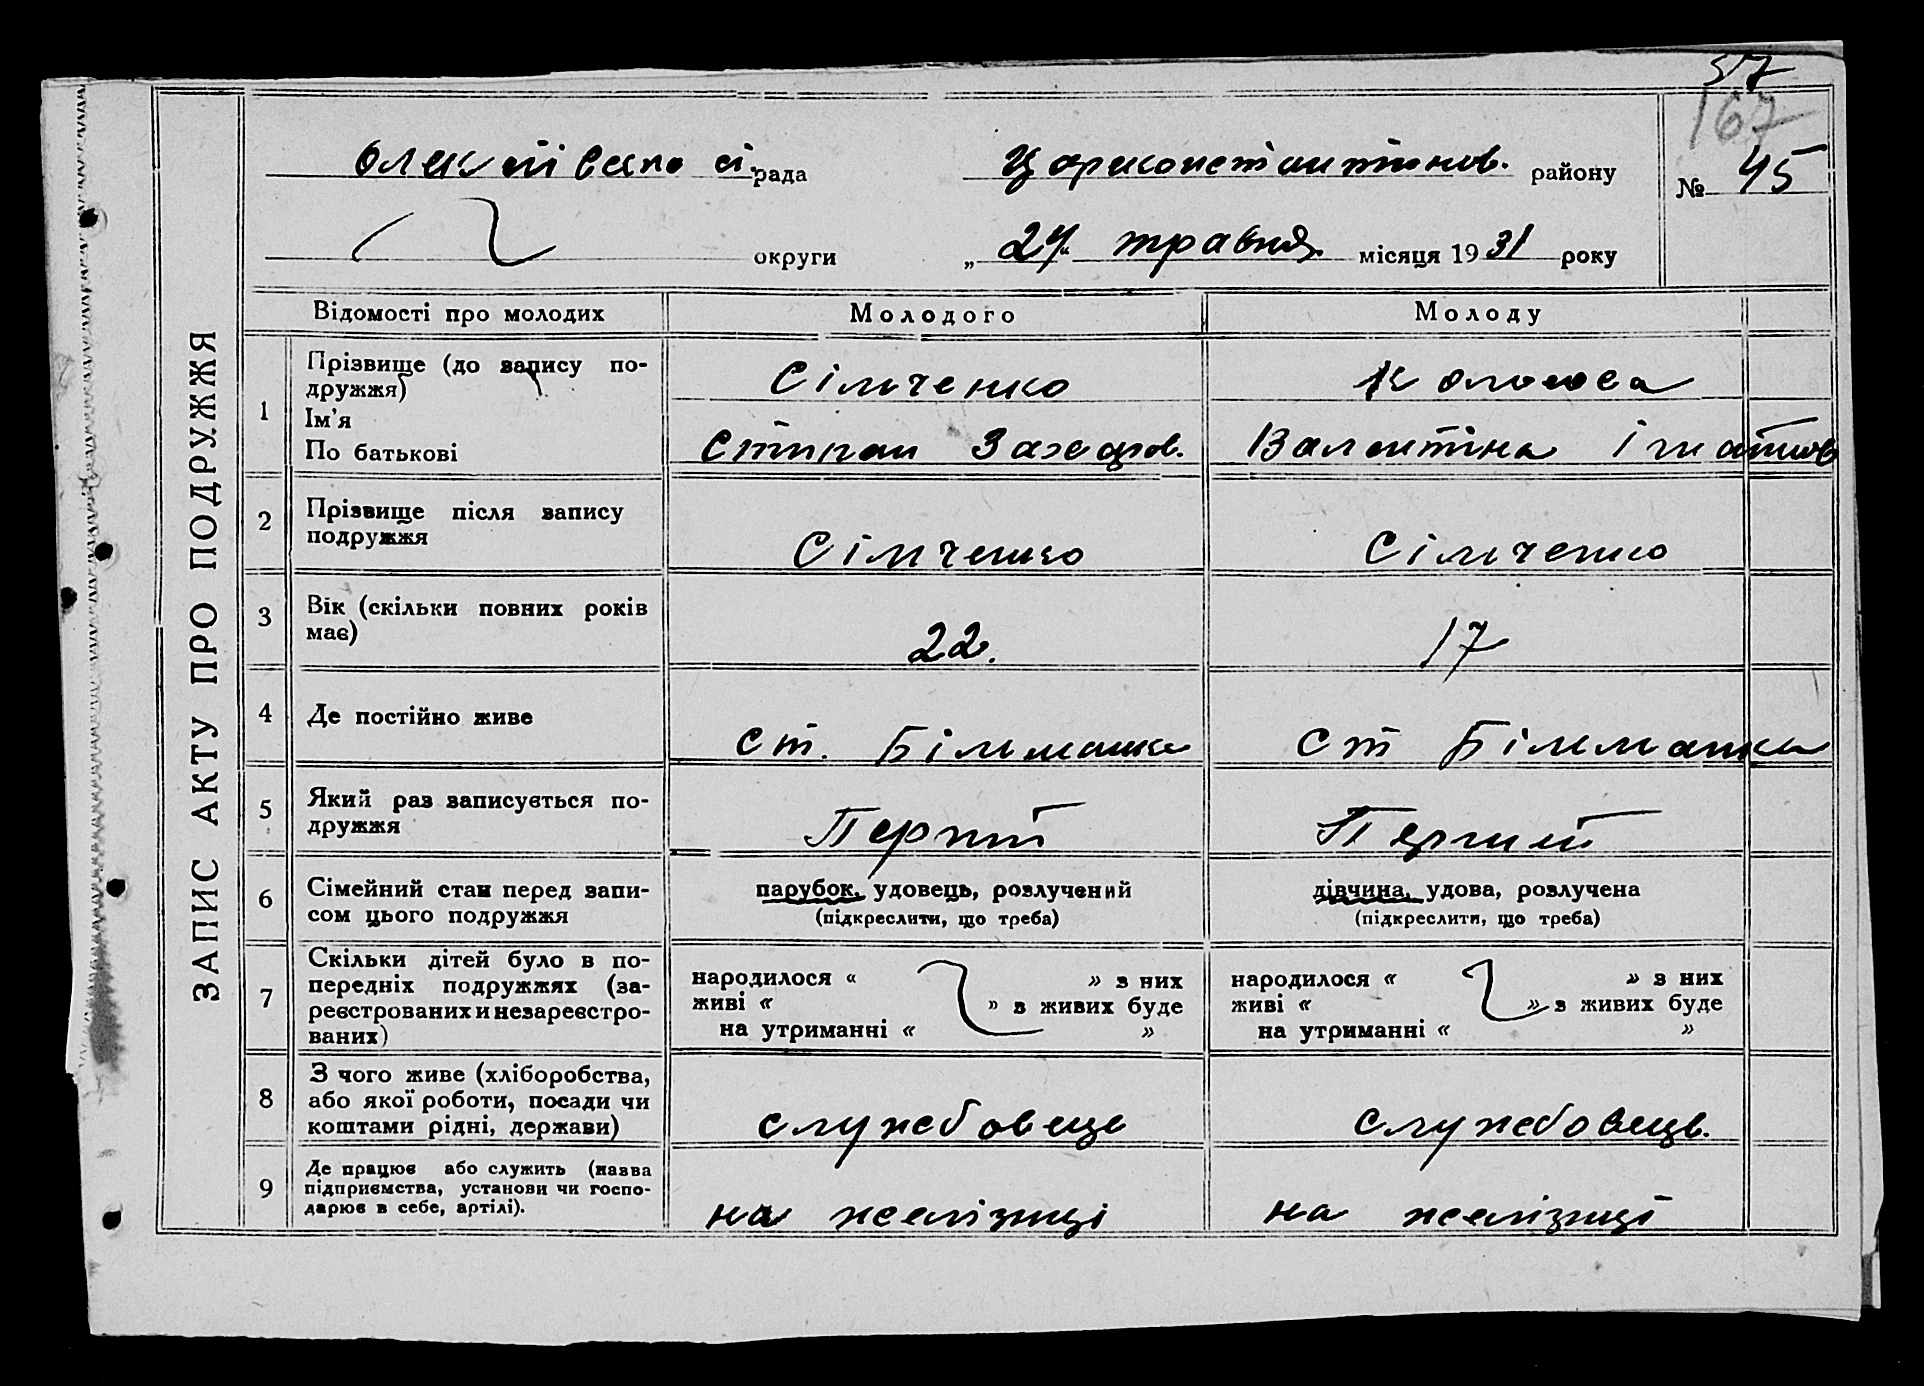 57
167
Олексіївська с. рада Цареконстантинов. району
№ 45
округи „24“ травня місяця 1931 року
ЗАПИС АКТУ ПРО ПОДРУЖЖЯ
Відомості про молодих Молодого Молоду
1 Прізвище (до запису по-
дружжя) Сільченко
Ім’я
По батькові Степан Захаров. Валентіна Ігнатов
2 Прізвище після запису
подружжя Сільченко Сільченко
3 Вік (скільки повних років
має) 22. 17
4 Де постійно живе ст. Більманка ст Більманка
5 Який раз записується по-
дружжя Перший Перший
6 Сімейний стан перед запи-
сом цього подружжя
парубок, удовець, розлучений
(підкреслити, що треба)
дівчина, удова, розлучена
(підкреслити, що треба)
7 Скільки дітей було в по-
передніх подружжях (за-
реєстрованих и незареєстро-
ваних)
народилося « » з них
живі « » з живих буде
на утриманні « »
народилося « » з них
живі « » з живих буде
на утриманні « »
8 З чого живе (хліборобства,
або якої роботи, посади чи
коштами рідні, держави)
службовець службовець.
9 Де працює або служить (назва
підприємства, установи чи госпо-
дарює в себе, артілі).
на желізниці на желізниці